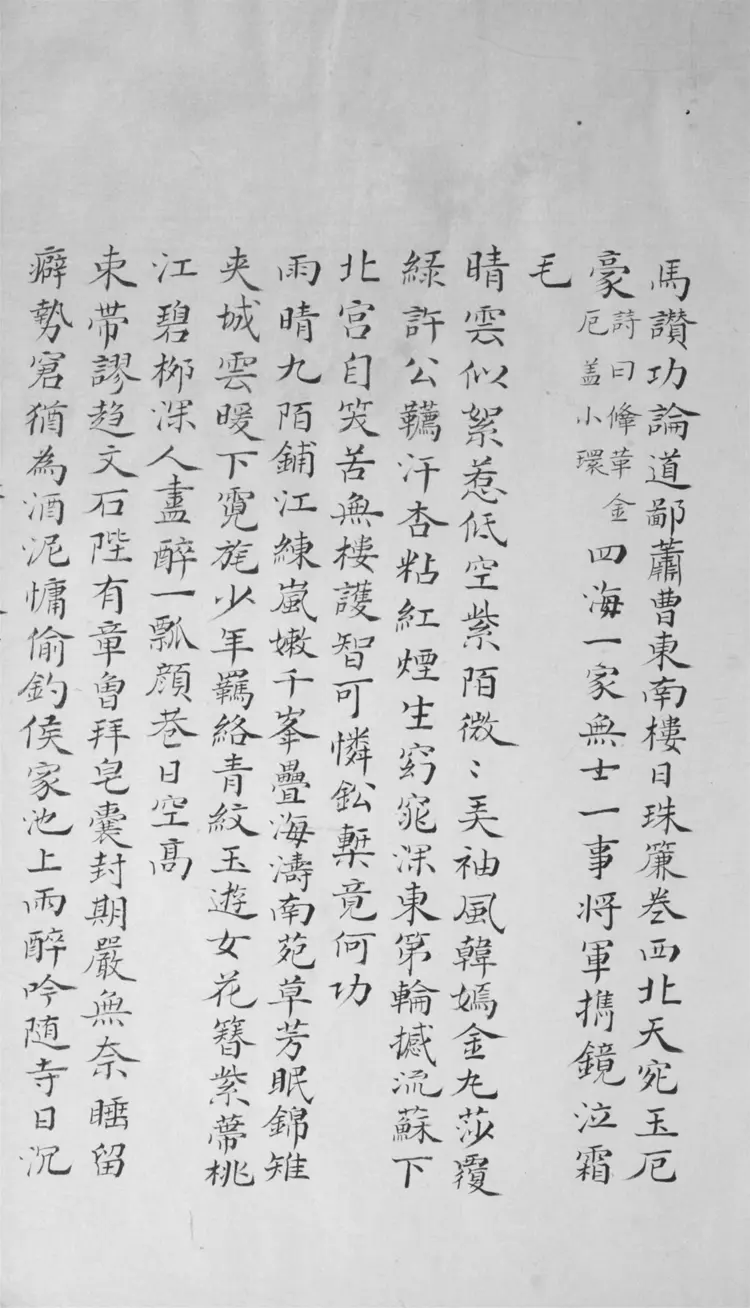 馬讚功論道鄙蕭曹東南樓日珠簾卷西北天宛玉厄
豪詩曰鞗革金厄蓋小環四海一家無士一事將軍攜鏡泣霜
毛
晴雲似絮惹低空紫陌微〻美袖風韓嫣金丸莎覆
綠許公韉汗杏粘紅煙生窈窕深東第輪撼流蘇下
北宮自笑苦無樓護智可憐鈆槧竟何功
雨晴九陌鋪江練嵐嫩千峯疊海濤南苑草芳眠錦雉
夾城雲暖下霓旄少年羈絡青紋玉遊女花簪紫蔕桃
江碧柳深人盡醉一瓢顏巷日空高
束帶謬趨文石陛有章曾拜皂囊封期嚴無奈睡留
癖勢窘猶為酒泥慵偷釣侯家池上雨醉吟隨寺日沉